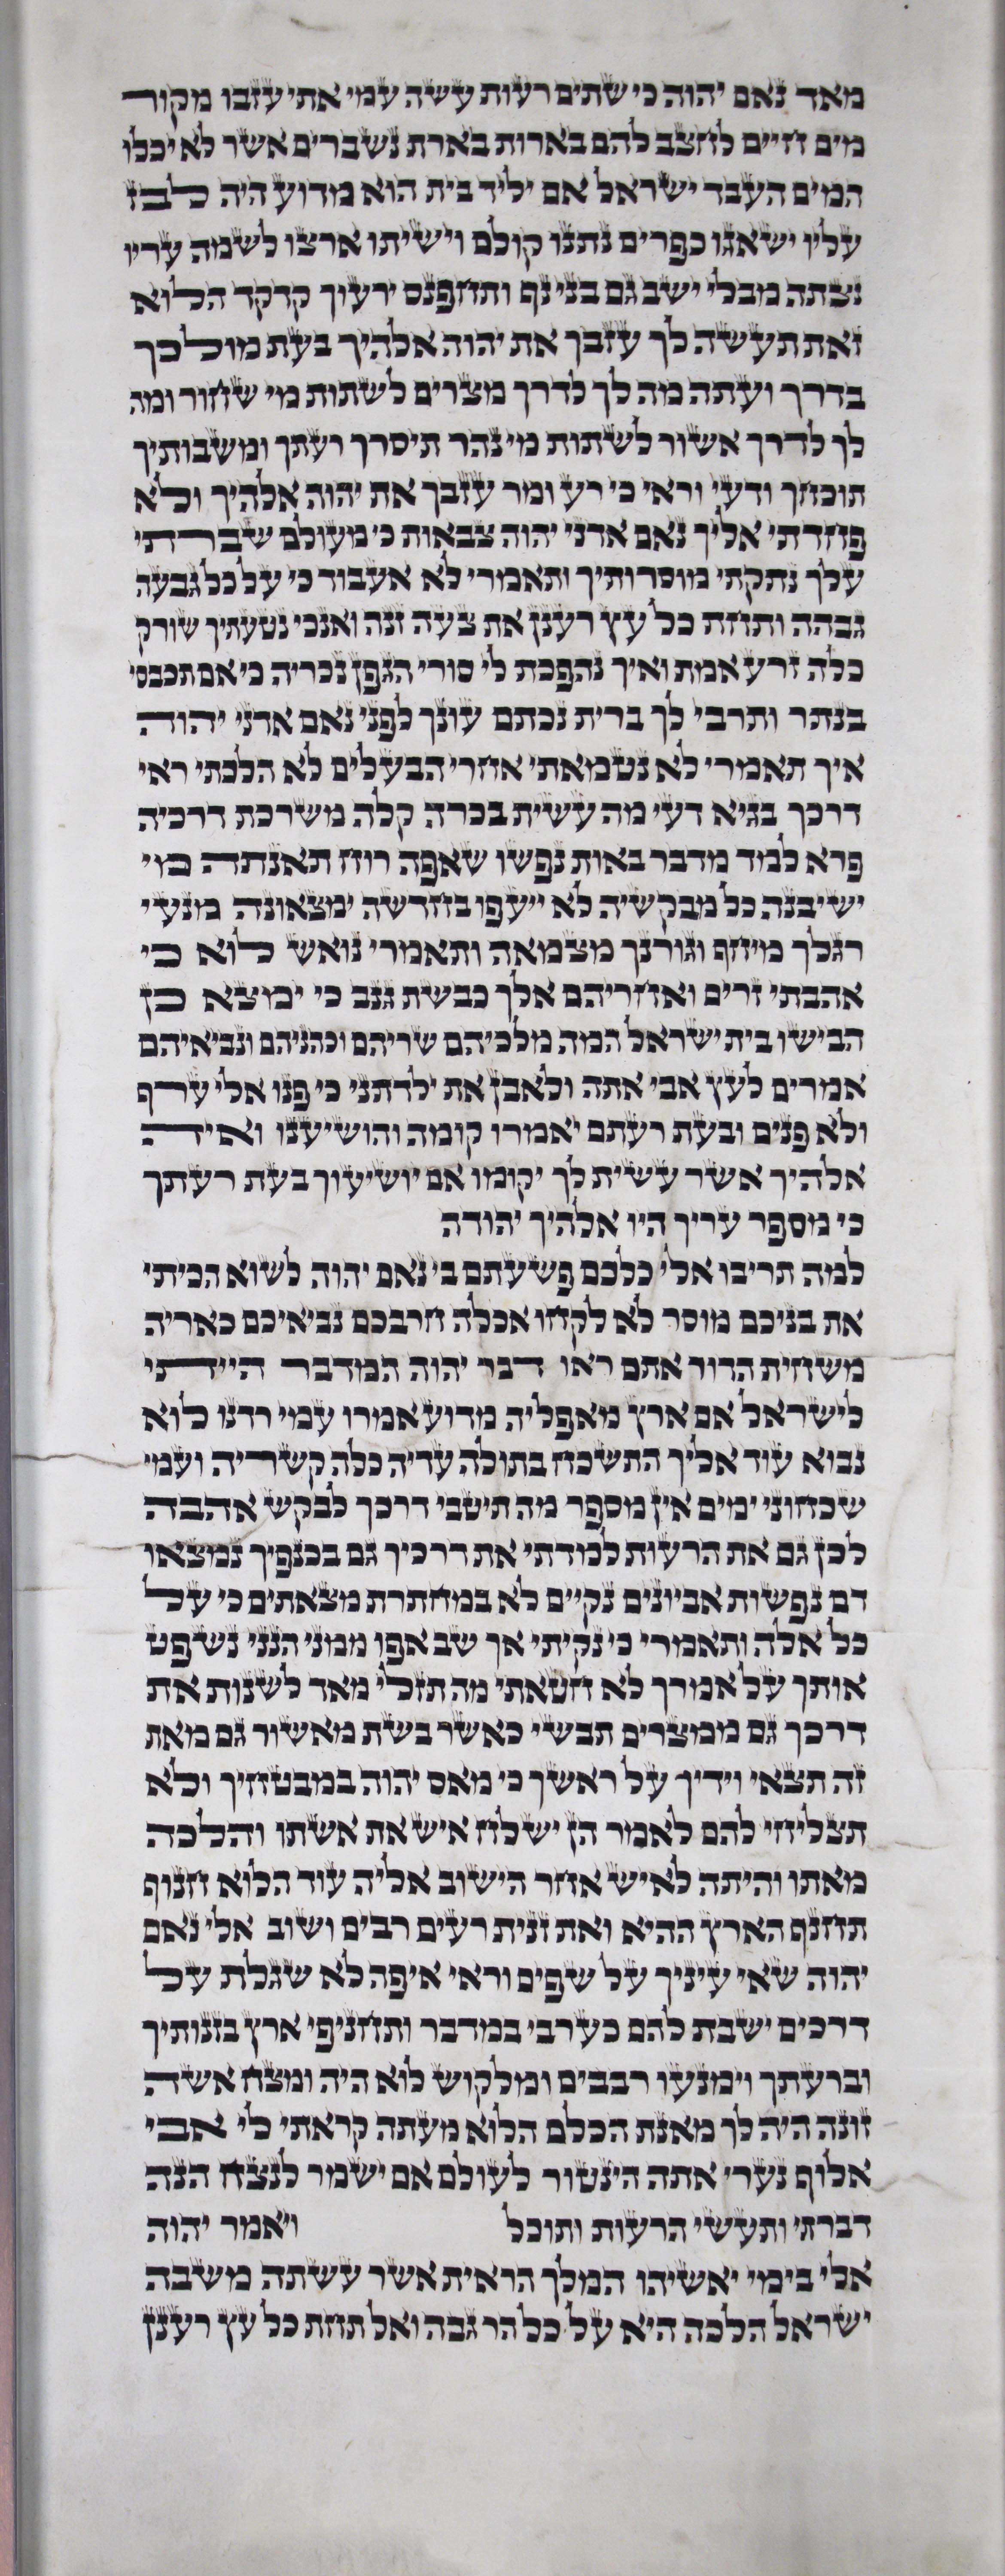 מאד נאם יהוה כי שתים רעות עשה עמי אתי עזבו מקור
מים חיים לחצב להם בארות בארת נשברים אשר לא יכלו
המים העבד ישראל אם יליד בית הוא מדוע היה לבז
עליו ישאגו כפרים נתנו קולם וישיתו ארצו לשמה עריו
נצתה מבלי ישב גם בני נף ותחפנס ירעוך קדקד הלוא
זאת תעשה לך עזבך את יהוה אלהיך בעת מולכך
בדרך ועתה מה לך לדרך מצרים לשתות מי שחור ומה
לך לדרך אשור לשתות מי נהר תיסרך רעתך ומשבותיך
תוכחך ודעי וראי כי רע ומר עזבך את יהוה אלהיך ולא
פחדתי אליך נאם אדני יהוה צבאות כי מעולם שברתי
עלך נתקתי מוסרותיך ותאמרי לא אעבוד כי על כל גבעה
גבהה ותחת כל עץ רענן את צעה זנה ואנכי נטעתיך שורק
כלה זרע אמת ואיך נהפכת לי סורי הגפן נכריה כי אם תכבסי
בנתר ותרבי לך ברית נכתם עונך לפני נאם אדני יהוה
איך תאמרי לא נטמאתי אחרי הבעלים לא הלכתי ראי
דרכך בגיא דעי מה עשית בכרה קלה משרכת דרכיה
פרא למד מדבר באות נפשו שאפה רוח תאנתה מי
ישיבנה כל מבקשיה לא ייעפו בחדשה ימצאונה מנעי
רגלך מיחף וגורנך מצמאה ותאמרי נואש לוא כי
אהבתי זרים ואחריהם אלך כבשת גנב כי ימצא כן
הבישו בית ישראל המה מלכיהם שריהם וכהניהם ונביאיהם
אמרים לעץ אבי אתה ולאבן את ילדתני כי פנו אלי ערף
ולא פנים ובעת רעתם יאמרו קומה והושיענו ואיה
אלהיך אשר עשית לך יקומו אם יושיעוך בעת רעתך
כי מספר עריך היו אלהיך יהודה
למה תריבו אלי כלכם פשעתם בי נאם יהוה לשוא הכיתי
את בניכם מוסר לא לקחו אכלה חרבכם נביאיכם כאריה
משחית הדור אתם ראו דבר יהוה המדבר הייתי
לישראל אם ארץ מאפליה מדוע אמרו עמי רדנו לוא
נבוא עוד אליך התשכח בתולה עדיה כלה קשריה ועמי
שכחוני ימים אין מספר מה תיטבי דרכך לבקש אהבה
לכן גם את הרעות למדתי את דרכיך גם בכנפיך נמצאו
דם נפשות אביונים נקיים לא במחתרת מצאתים כי על
כל אלה ותאמרי כי נקיתי אך שב אפו ממני הנני נשפט
אותך על אמרך לא חטאתי מה תזלי מאד לשנות את
דרכך גם ממצרים תבשי כאשר בשת מאשור גם מאת
זה תצאי וידיך על ראשך כי מאס יהוה במבטחיך ולא
תצליחי להם לאמר הן ישלח איש את אשתו והלכה
מאתו והיתה לאיש אחר הישוב אליה עוד הלוא חנוף
תחנף הארץ ההיא ואת זנית רעים רבים ושוב אלי נאם
יהוה שאי עיניך על שפים וראי איפה לא שגלת על
דרכים ישבת להם כערבי במדבר ותחניפי ארץ בזנותיך
וברעתך וימנעו רבבים ומלקוש לוא היה ומצח אשה
זונה היה לך מאנת הכלם הלוא מעתה קראתי לי אבי
אלוף נערי אתה הינטור לעולם אם ישמר לנצח הנה
דברתי ותעשי הרעות ותוכל ויאמר יהוה
אלי בימי יאשיהו המלך הראית אשר עשתה משבה
ישראל הלכה היא על כל הר גבה ואל תחת כל עץ רענן